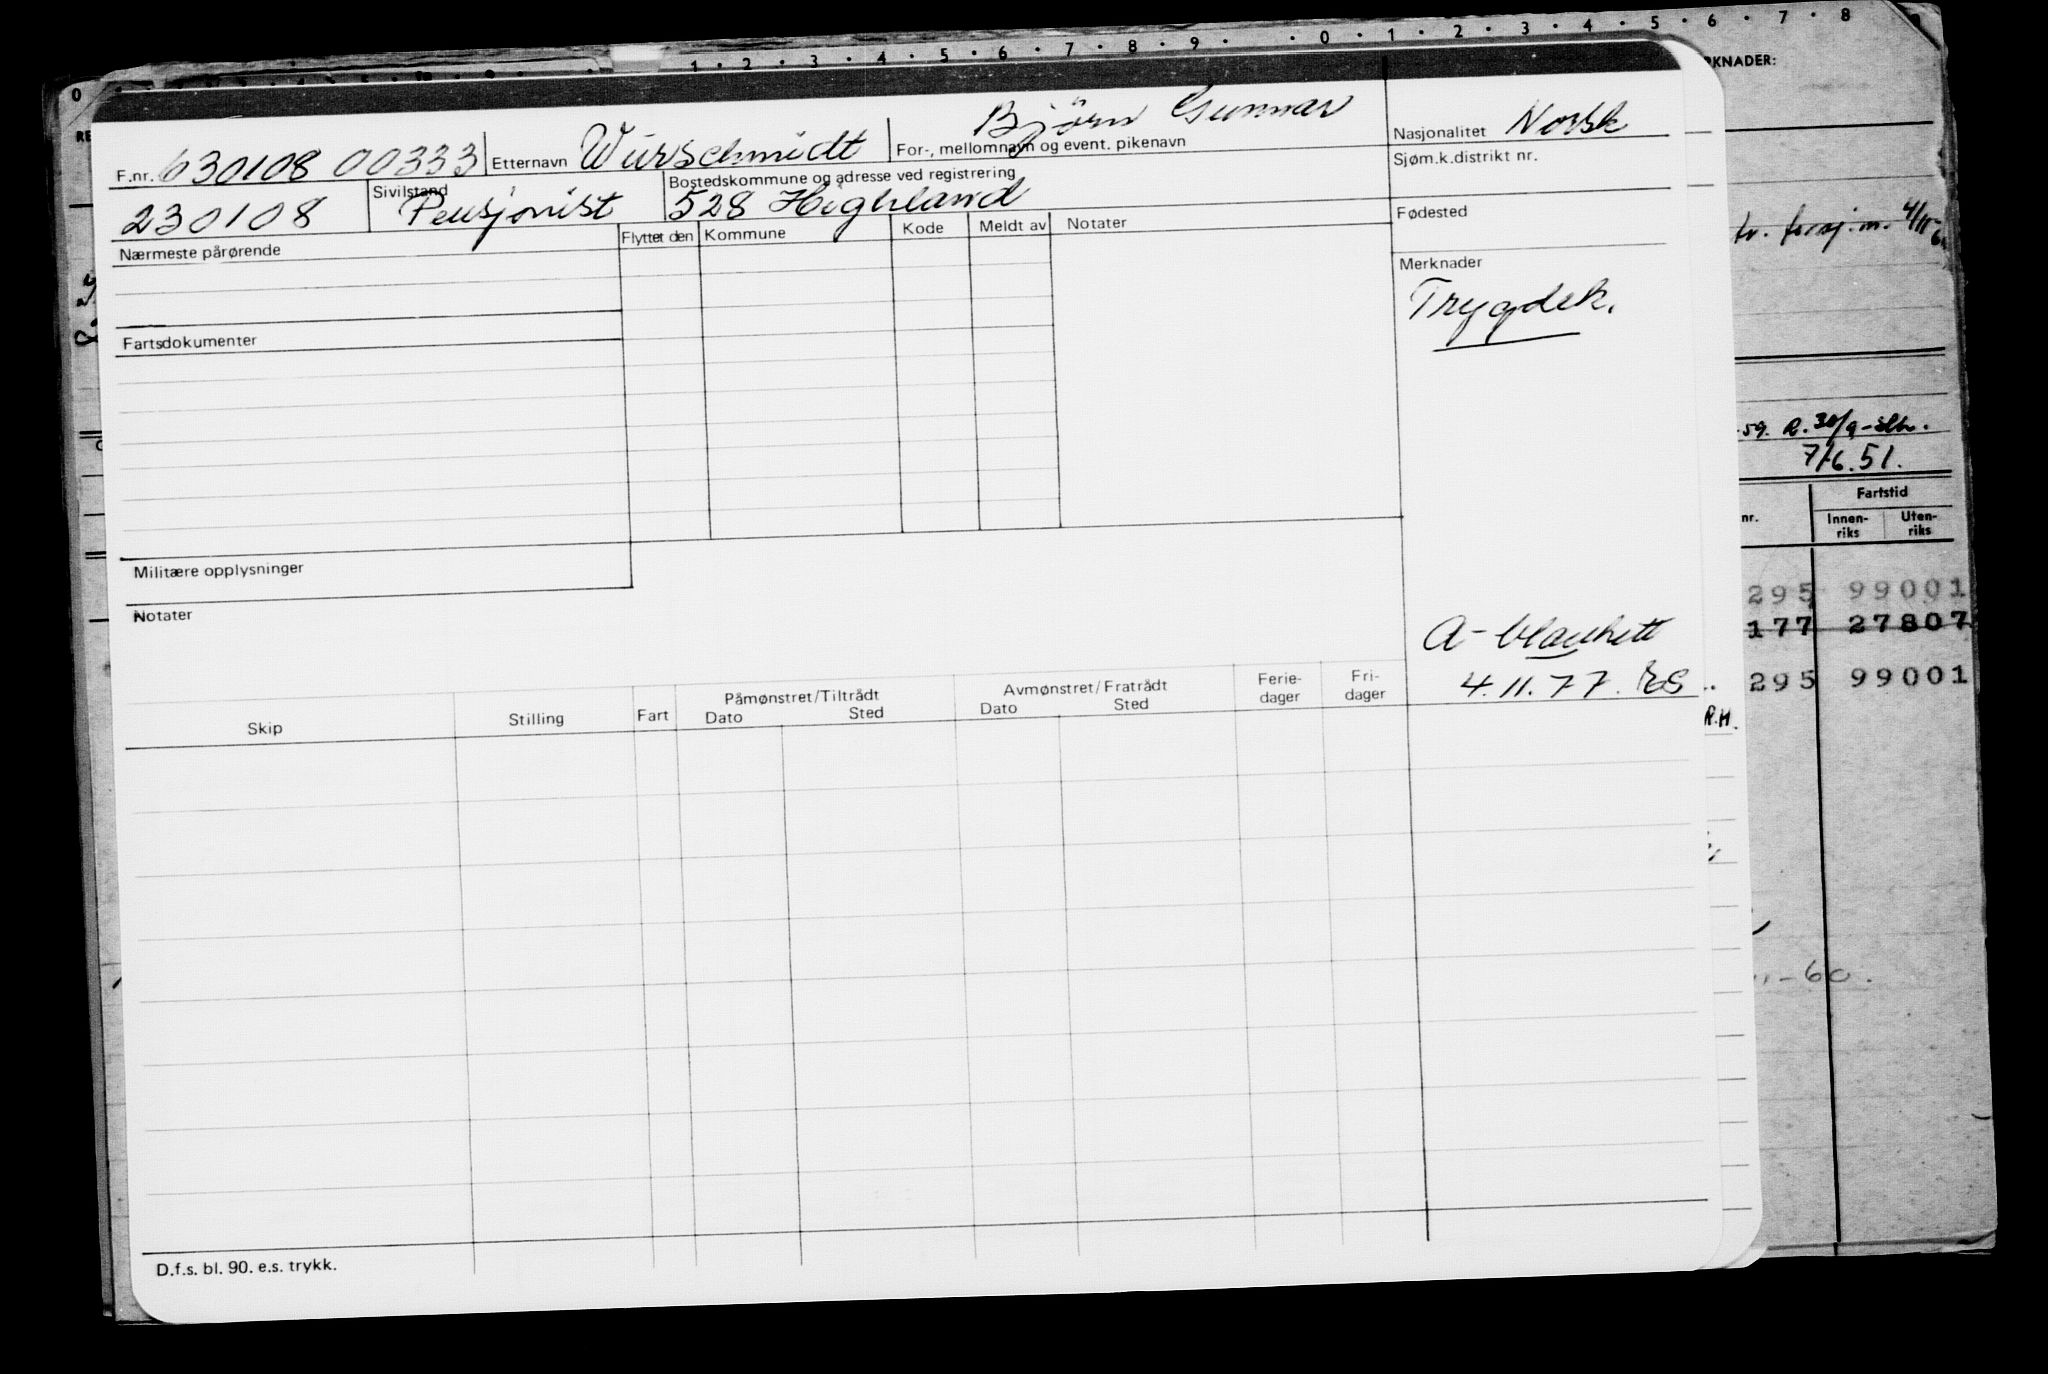 0 · 1 · 2 · 3 · 4 · 5 · 6 · 7 · 8
1 · 2 · 3 · 4 · 5 · 6 · 7 · 8 · 9 ·
F.nr. 630108 00333 Etternavn Würschmidt For-, mellomnavn og event. pikenavn Björn Gunnar Nasjonalitet Norsk
Sjøm.k.distrikt nr.
230108 Sivilstand Pensjonist Bostedskommune og adresse ved registrering 528 Highland
Fødested
Nærmeste pårørende Flyttet den Kommune Kode Meldt av Notater
Merknader
Trygdek.
Fartsdokumenter
Militære opplysninger
Notater
A- blankett
4.11.77. ES
Skip Stilling Fart Påmønstret/Tiltrådt Dato Sted Avmønstret/Fratrådt Dato Sted Ferie-dager Fri-dager
D.f.s. bl. 90. e.s. trykk.
RKNADER:
59. R. 30/9
7/6.51.
nr. Fartstid
Innen-riks Uten-riks
295 99001
177 27807
295 99001
R.H.
-60.